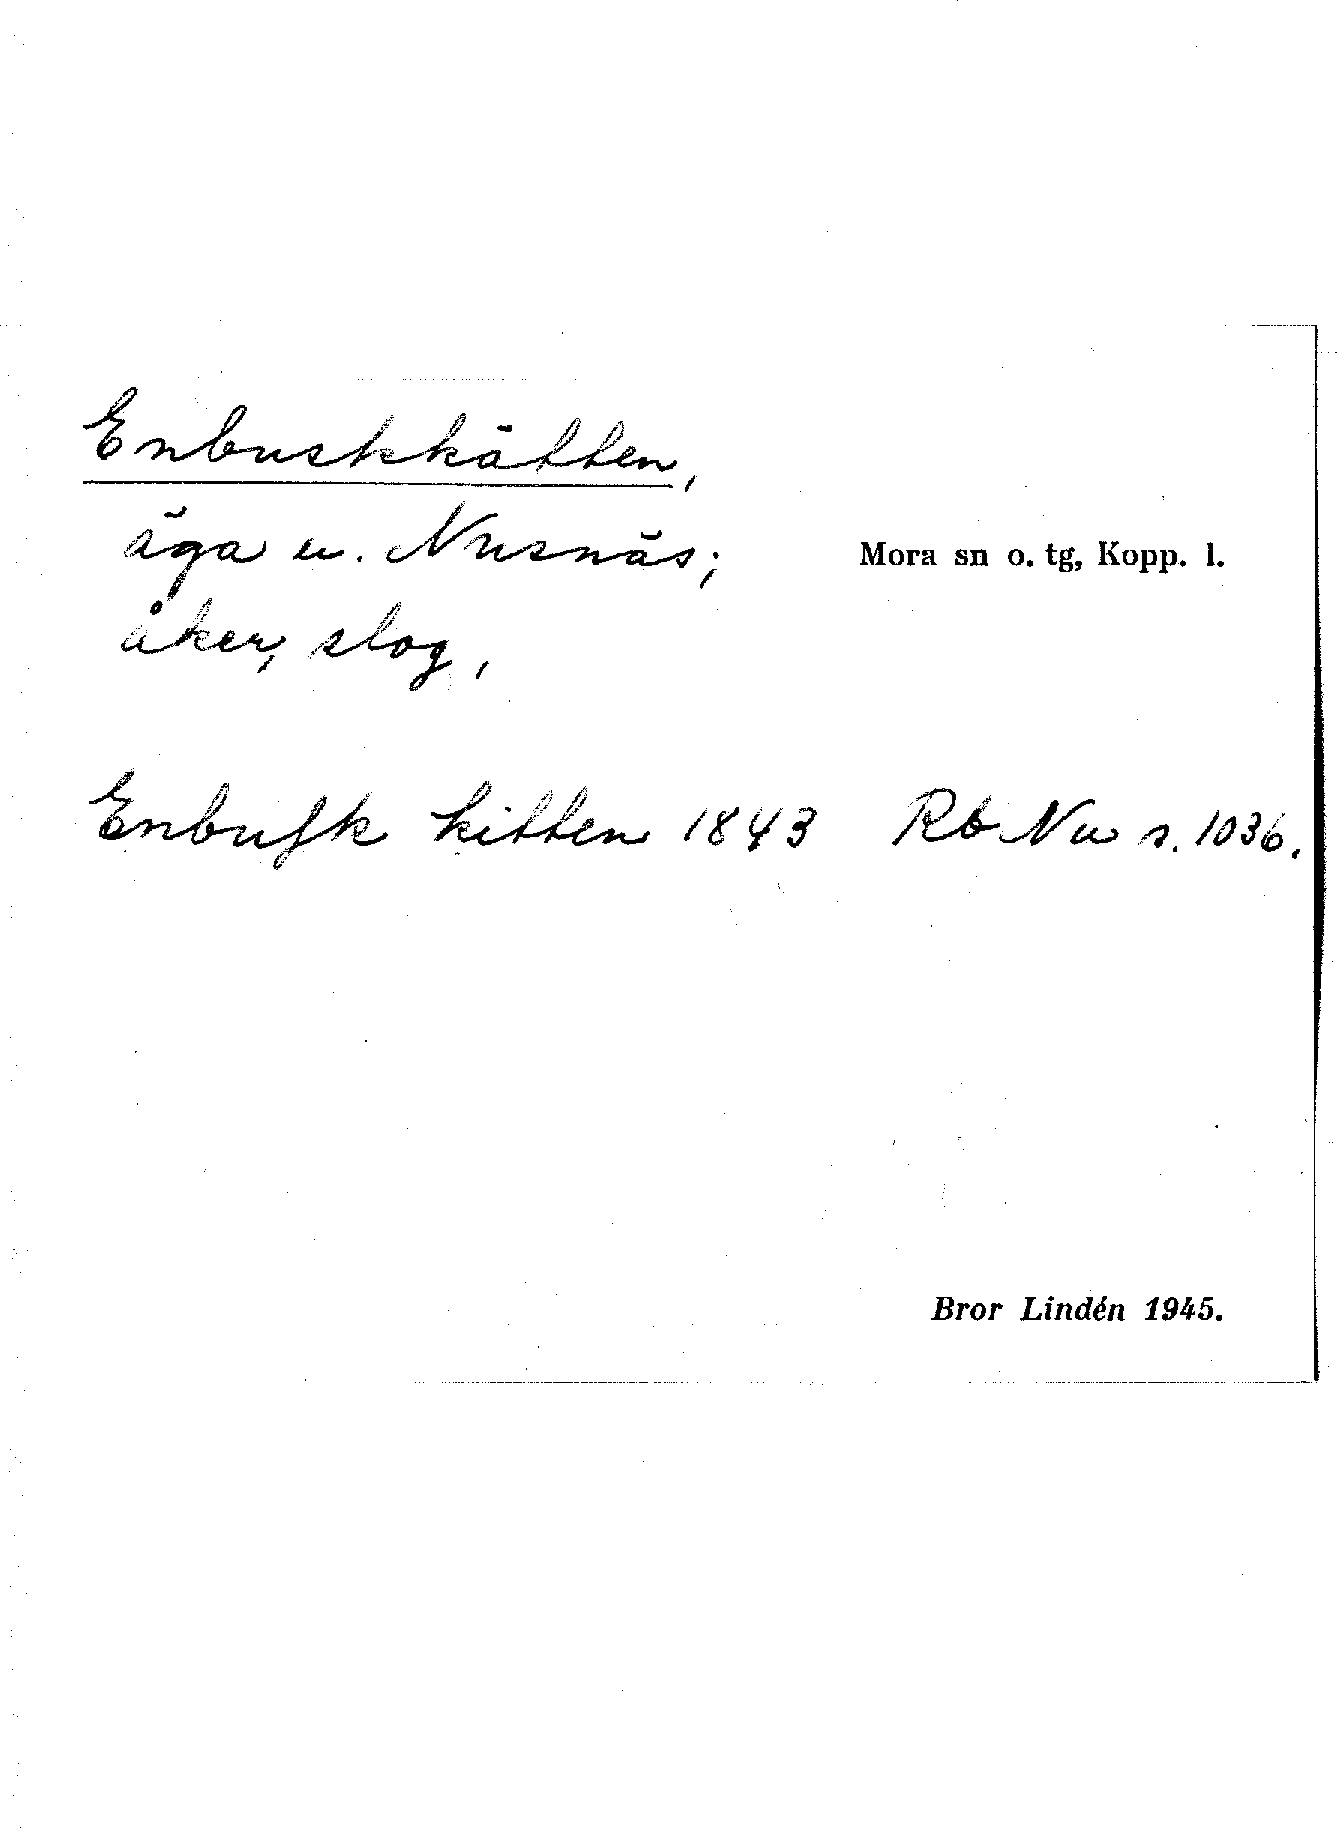 Enbuskkätten,
äga u. Nusnäs;
Mora sn o. tg, Kopp. l.
åker, slog,
Enbuſk kitten 1843 Rb Nu s. 1036.
Bror Lindén 1945.